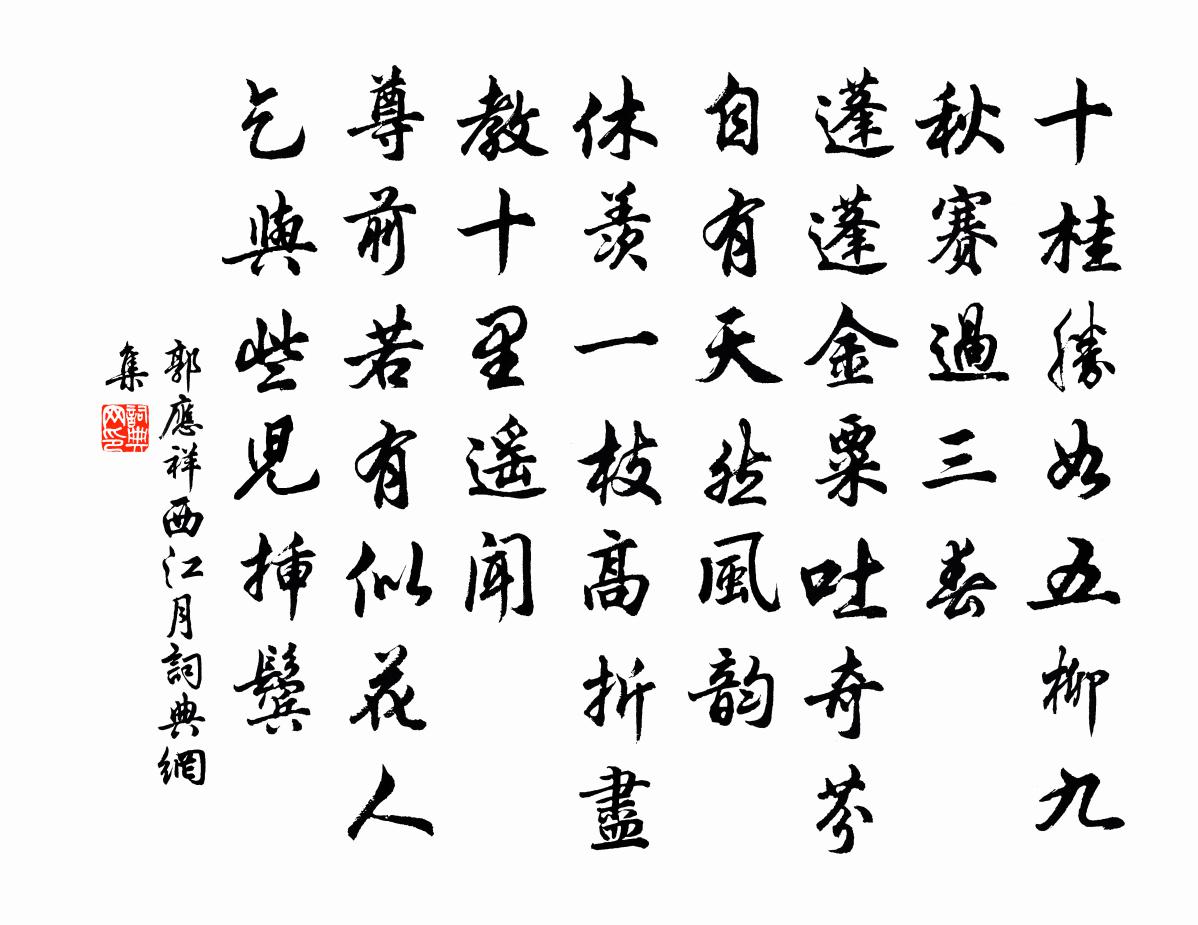 十桂勝如五柳九
秋賽過三春
蓬蓬金粟吐奇芬
自有天然風韵
休羨一枝高折盡
教十里遥聞
尊前若有似花人
乞與些兒插鬓
郭應祥西江月詞典網
集
詞典
网印